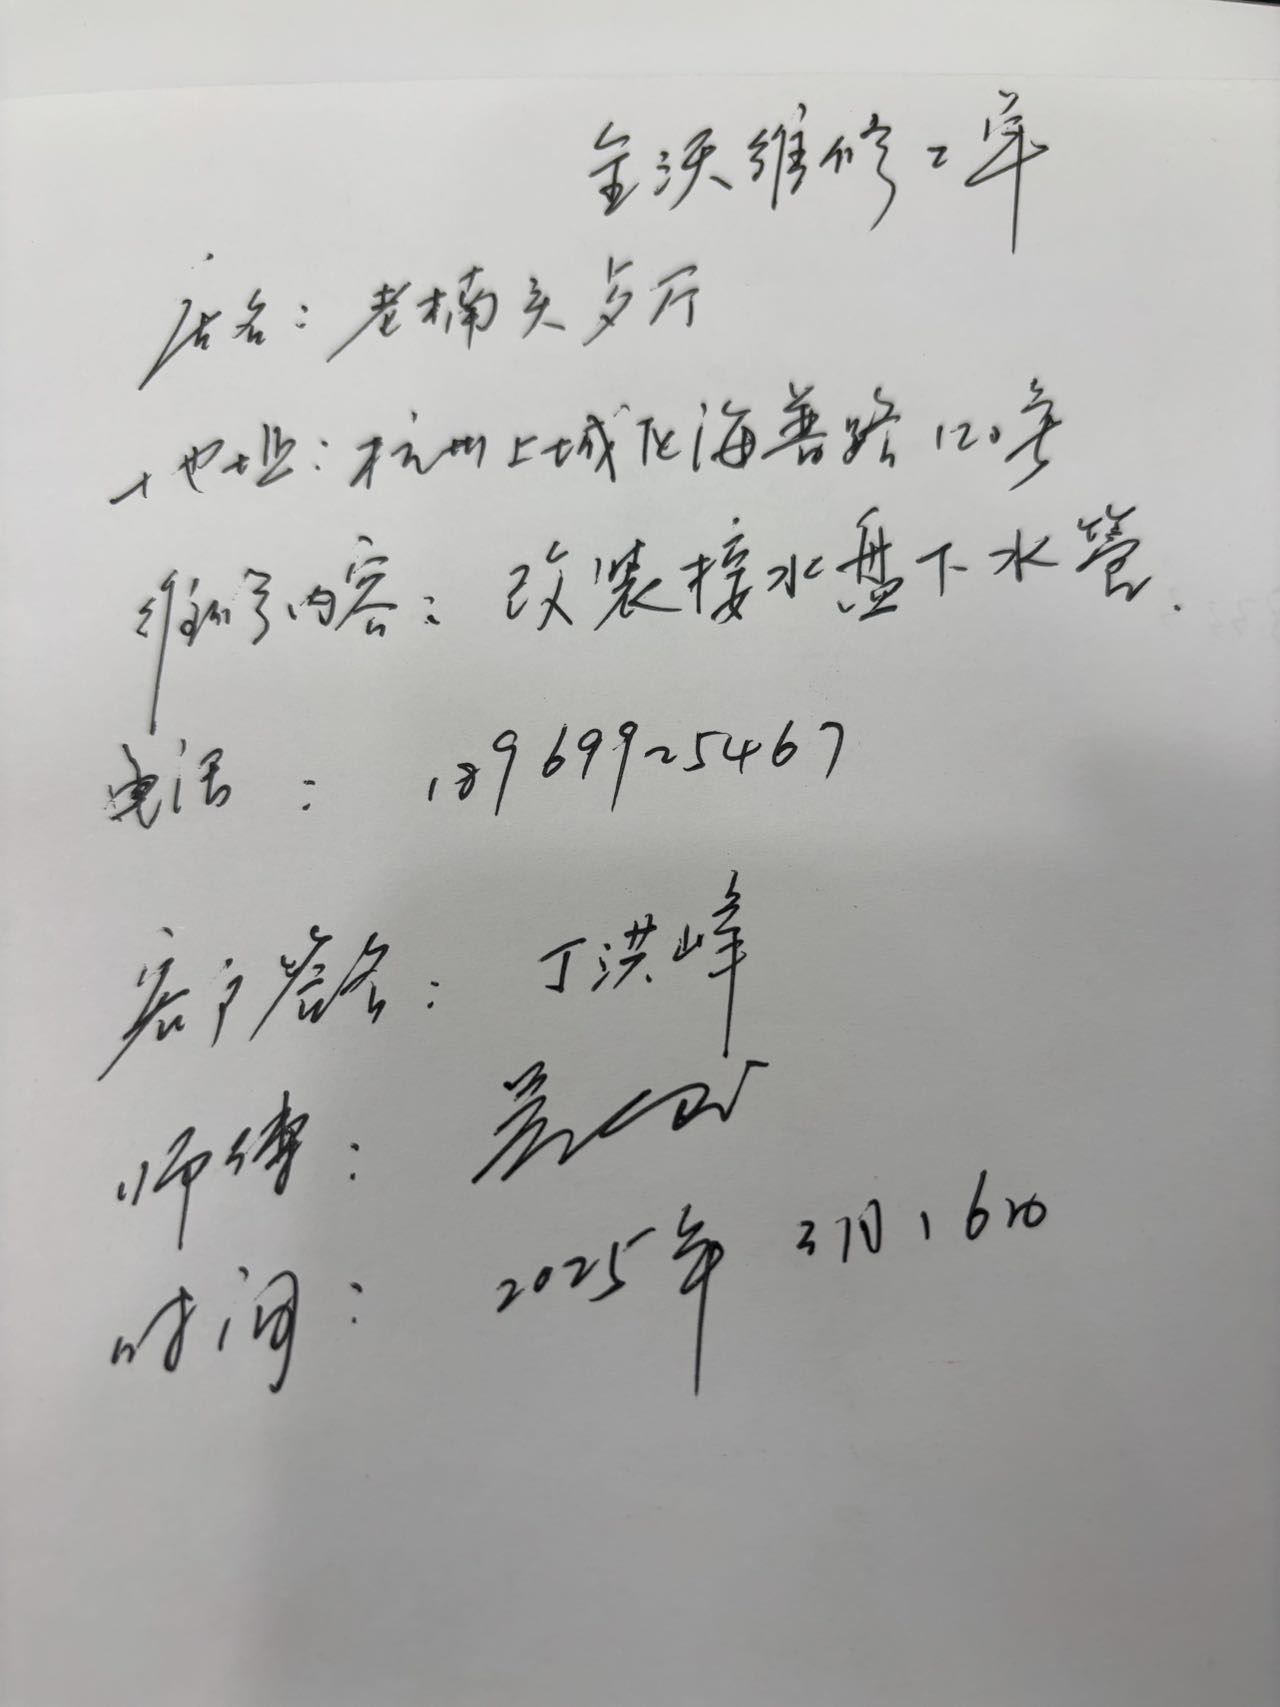 金沃维修工单
店名：老楠头多厅
地址：杭州上城区海普路120号
维修内容：改装接水盘下水管.
电话：18969925467
客户签名：丁洪峰
师傅：
时间：2025年3月16日